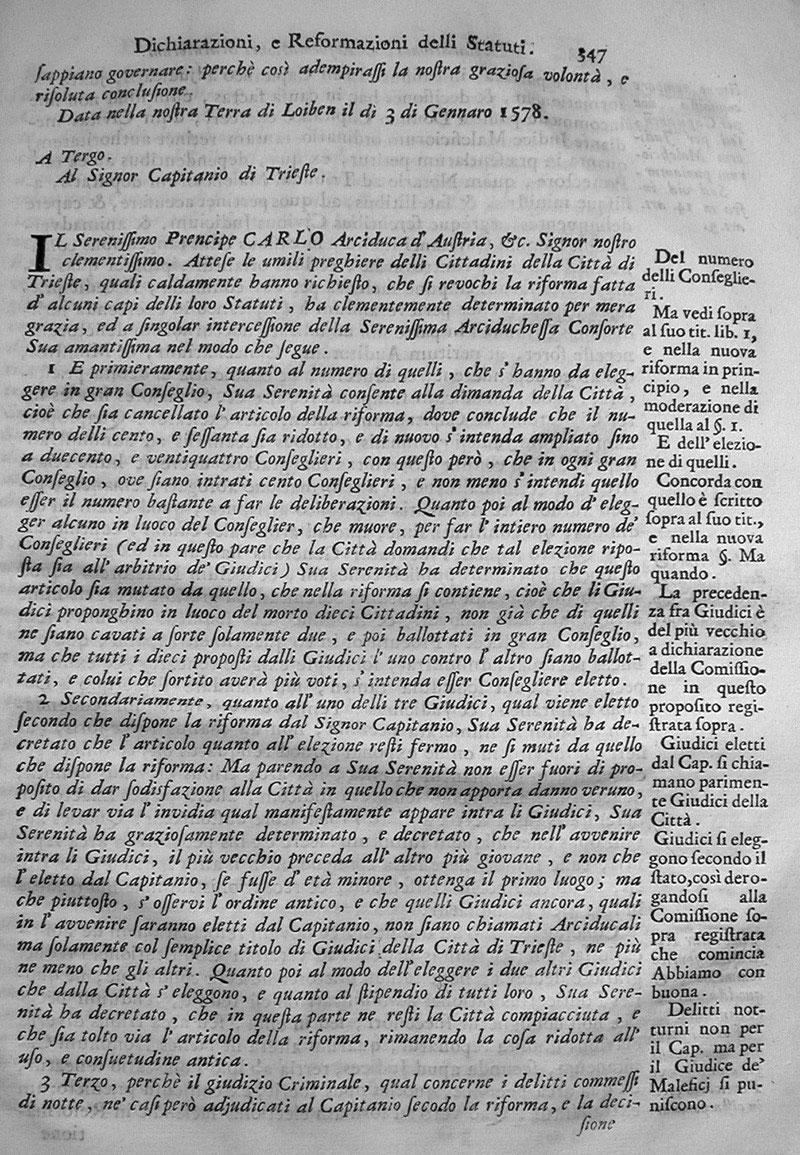 Dichiarazioni, e Reformazioni delli Statuti. 347
ſappiano governare: perchè così adempiraſſi la noſtra grazioſa volontà, e
riſoluta concluſione.
Data nella noſtra Terra di Loiben il di 3 di Gennaro 1578.
A Tergo.
Al Signor Capitanio di Trieſte.
IL Sereniſſimo Prencipe CARLO Arciduca d'Auſtria, &c. Signor noſtro
clementiſſimo. Atteſe le umili preghiere delli Cittadini della Città di
Trieſte, quali caldamente hanno richieſto, che ſi revochi la riforma fatta
d'alcuni capi delli loro Statuti, ha clementemente determinato per mera
grazia, ed a ſingolar interceſſione della Sereniſſima Arciducheſſa Conſorte
Sua amantiſſima nel modo che ſegue.
1 E primieramente, quanto al numero di quelli, che s'hanno da eleg-
gere in gran Conſeglio, Sua Serenità conſente alla dimanda della Città,
cioè che ſia cancellato l'articolo della riforma, dove conclude che il nu-
mero delli cento, e ſeſſanta ſia ridotto, e di nuovo s'intenda ampliato ſino
a duecento, e ventiquattro Conſeglieri, con queſto però, che in ogni gran
Conſeglio, ove ſiano intrati cento Conſeglieri, e non meno s'intendi quello
eſſer il numero baſtante a far le deliberazioni. Quanto poi al modo d'eleg-
ger alcuno in luoco del Conſeglier, che muore, per far l'intiero numero de'
Conſeglieri (ed in queſto pare che la Città domandi che tal elezione ripo-
ſta ſia all'arbitrio de' Giudici) Sua Serenità ha determinato che queſto
articolo ſia mutato da quello, che nella riforma ſi contiene, cioè che li Giu-
dici proponghino in luoco del morto dieci Cittadini, non già che di quelli
ne ſiano cavati a ſorte ſolamente due, e poi ballottati in gran Conſeglio,
ma che tutti i dieci propoſti dalli Giudici l'uno contro l'altro ſiano ballot-
tati, e colui che ſortito averà più voti, s'intenda eſſer Conſegliere eletto.
2 Secondariamente, quanto all'uno delli tre Giudici, qual viene eletto
ſecondo che diſpone la riforma dal Signor Capitanio, Sua Serenità ha de-
cretato che l'articolo quanto all'elezione reſti fermo, ne ſi muti da quello
che diſpone la riforma: Ma parendo a Sua Serenità non eſſer fuori di pro-
poſito di dar ſodisfazione alla Città in quello che non apporta danno veruno,
e di levar via l'invidia qual manifeſtamente appare intra li Giudici, Sua
Serenità ha grazioſamente determinato, e decretato, che nell'avvenire
intra li Giudici, il più vecchio preceda all'altro più giovane, e non che
l'eletto dal Capitanio, ſe fuſſe d'età minore, ottenga il primo luogo; ma
che piuttoſto, s'oſſervi l'ordine antico, e che quelli Giudici ancora, quali
in l'avvenire ſaranno eletti dal Capitanio, non ſiano chiamati Arciducali
ma ſolamente col ſemplice titolo di Giudici della Città di Trieſte, ne più
ne meno che gli altri. Quanto poi al modo dell'eleggere i due altri Giudici
che dalla Città s'eleggono, e quanto al ſtipendio di tutti loro, Sua Sere-
nità ha decretato, che in queſta parte ne reſti la Città compiacciuta, e
che ſia tolto via l'articolo della riforma, rimanendo la coſa ridotta all'
uſo, e conſuetudine antica.
3 Terzo, perchè il giudizio Criminale, qual concerne i delitti commeſſi
di notte, ne' caſi però adjudicati al Capitanio ſecodo la riforma, e la deci-
ſione
Del numero
delli Conſeglie-
ri.
Ma vedi ſopra
al ſuo tit. lib. 1,
e nella nuova
riforma in prin-
cipio, e nella
moderazione di
quella al §. 1.
E dell'elezio-
ne di quelli.
Concorda con
quello è ſcritto
ſopra al ſuo tit.,
e nella nuova
riforma §. Ma
quando.
La preceden-
za fra Giudici è
del più vecchio
a dichiarazione
della Comiſſio-
ne in queſto
propoſito regi-
ſtrata ſopra.
Giudici eletti
dal Cap. ſi chia-
mano parimen-
te Giudici della
Città.
Giudici ſi eleg-
gono ſecondo il
ſtato, così dero-
gandoſi alla
Comiſſione ſo-
pra regiſtrata
che comincia
Abbiamo con
buona.
Delitti not-
turni non per
il Cap. ma per
il Giudice de'
Maleficj ſi pu-
niſcono.